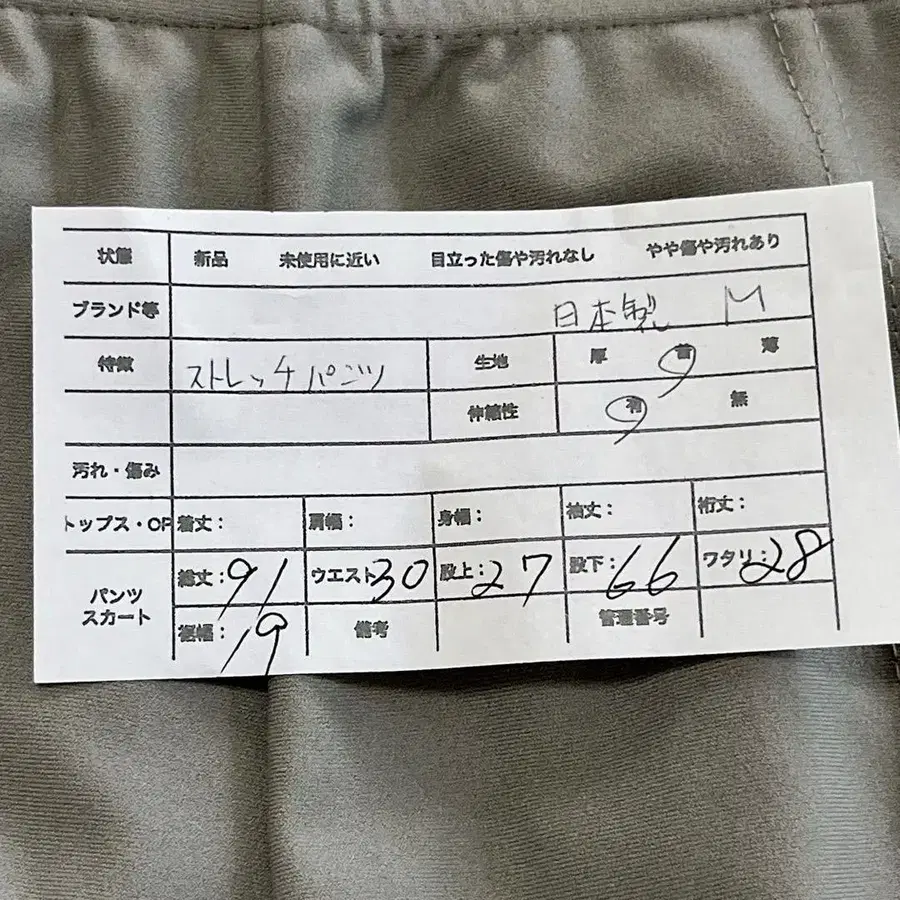 状態 新品 未使用に近い 目立った傷や汚れなし やや傷や汚れあり
ブランド等 日本製 M
特徴 ストレッチパンツ 生地 厚 普 薄
伸縮性 有 無
汚れ・傷み
トップス・OP 着丈: 肩幅: 身幅: 袖丈: 裄丈:
パンツ スカート 総丈:91 ウエスト30 股上:27 股下:66 ワタリ:28
裾幅:19 備考 管理番号